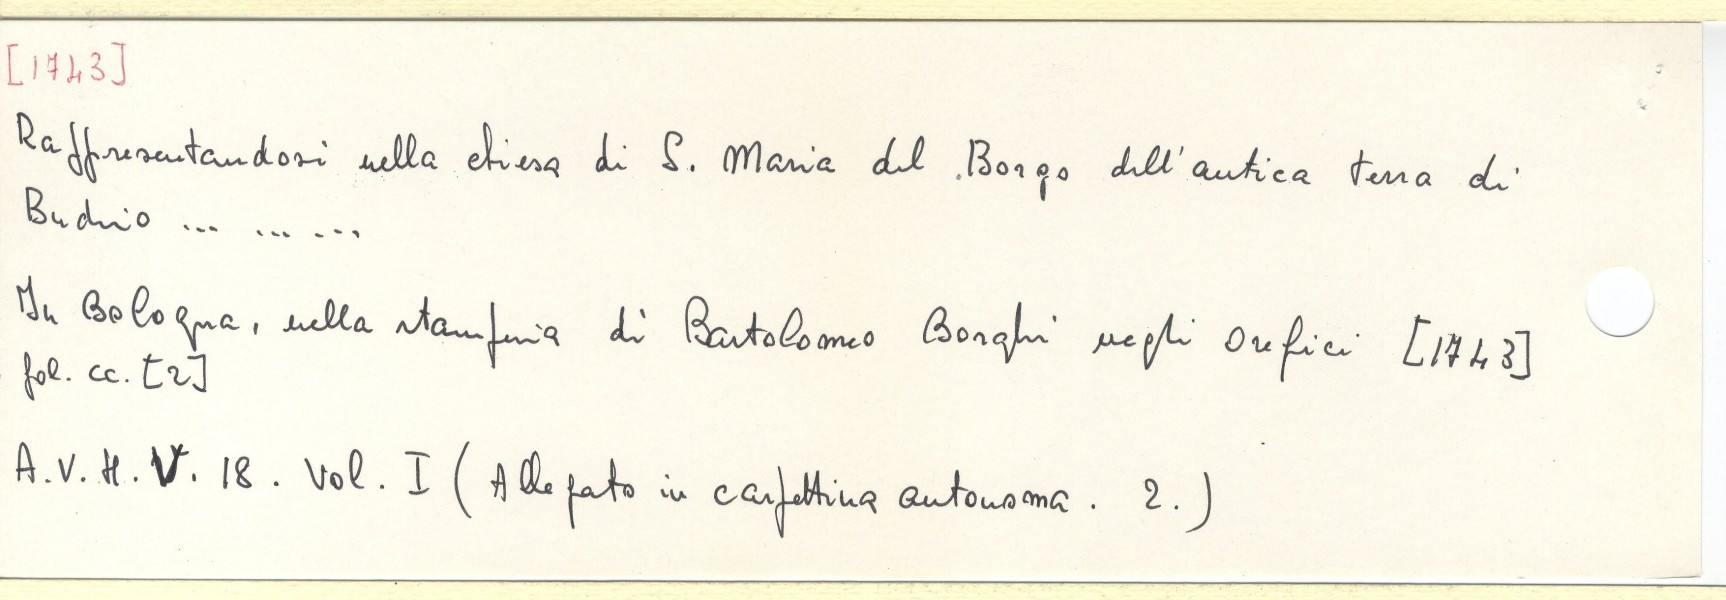 [1743]
Rappresentandosi nella chiesa di S. Maria del Borgo dell'antica terra di
Budrio ... ... ...
In Bologna, nella stamperia di Bartolomeo Borghi negli Orefici [1743]
fol. cc. [2]
A.V.H.V. 18. Vol. I (Allegato in carpettina autonoma. 2.)